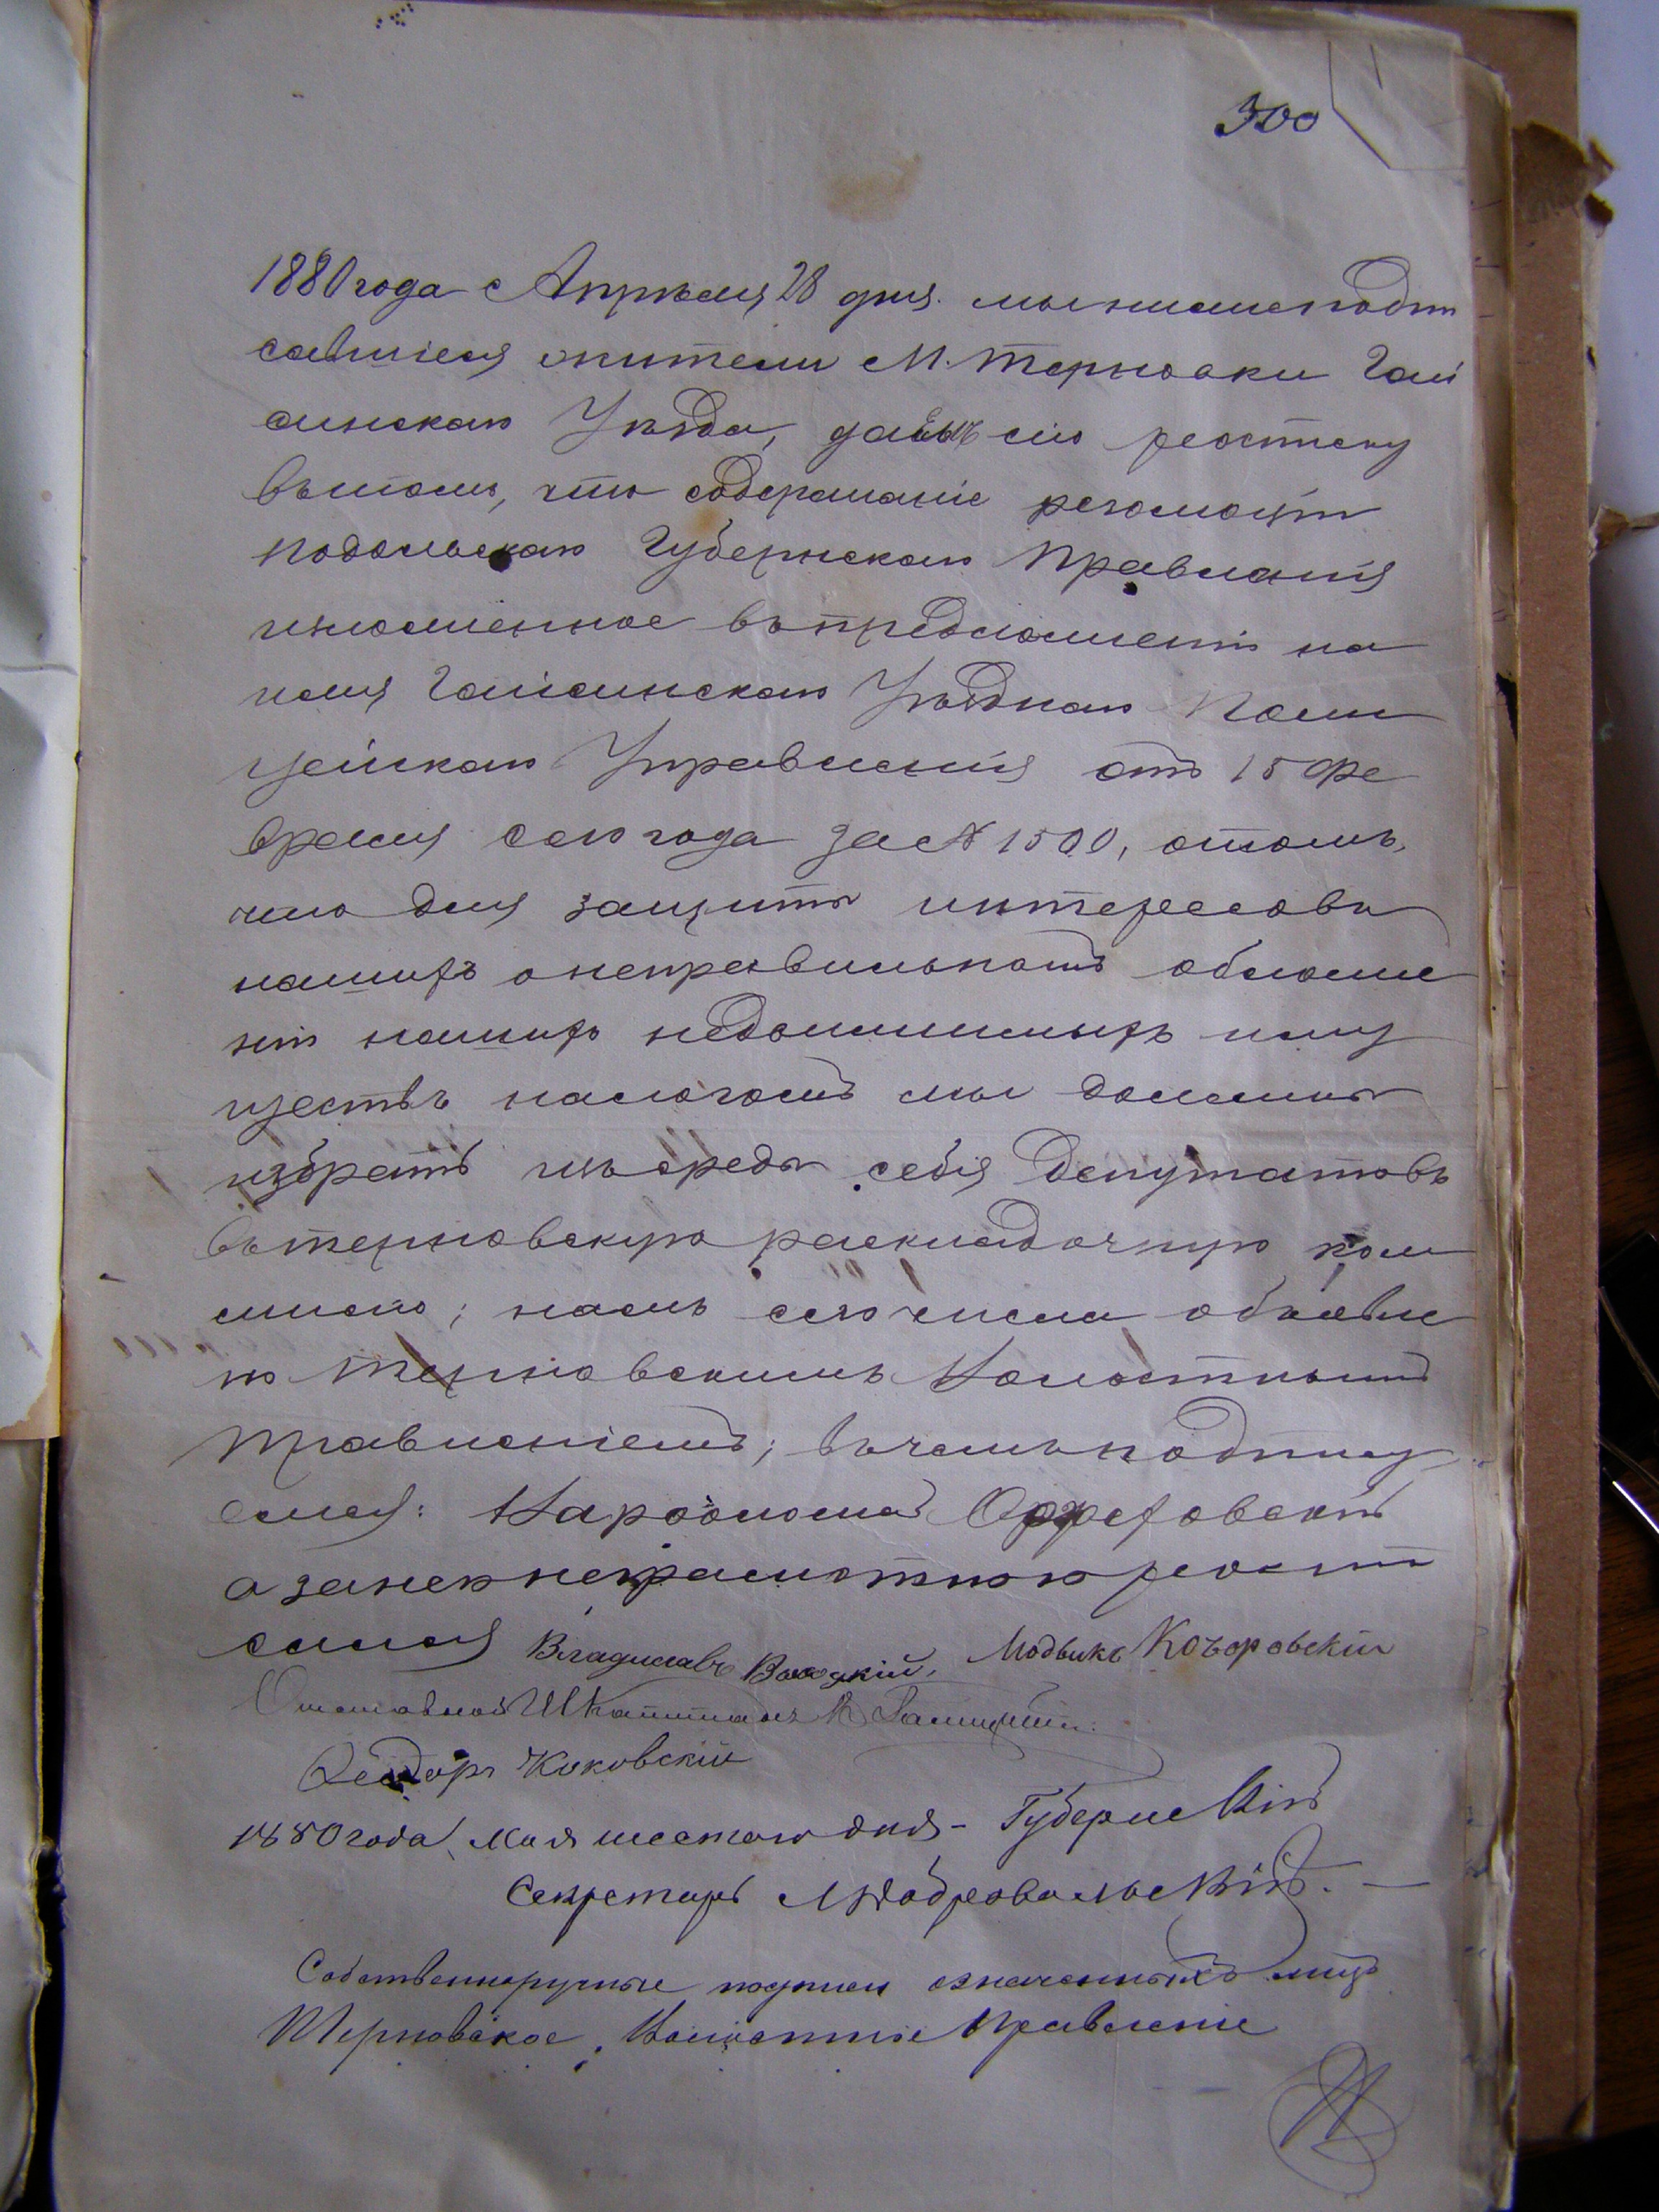 300
1880 года Апрѣля 28 дня. мы нижеподпи
савшіеся жители М. Терновки Гай
синскаго Уѣзда, даемъ сію росписку
въ томъ, что содержаніе резолюціи
Подольскаго Губернскаго Правленія
изложенное въ предложеніи на
имя Гайсинскаго Уѣзднаго Поли
цейскаго Управленія отъ 15 Фе
враля сего года за № 1500, отомъ,
что для защиты интересовъ
нашихъ о неправильномъ обложе
ніи нашихъ недвижимыхъ иму
ществъ налогомъ мы должны
избрать изъ среды себя Депутатовъ
въ терновскую раскладочную ком
мисію; намъ сего числа объявле
но Терновскимъ Волостнымъ
Правленіемъ; въ чемъ подпису
емся:
а за него неграмотного роспи
сался Владиславъ
Отставной Ш Капитанъ
Ѳеодоръ
1880 года, Мая шестаго дня -
Секретарь
Собственноручные подписи означенныхъ лицъ
Терновское Волостное Правленіе